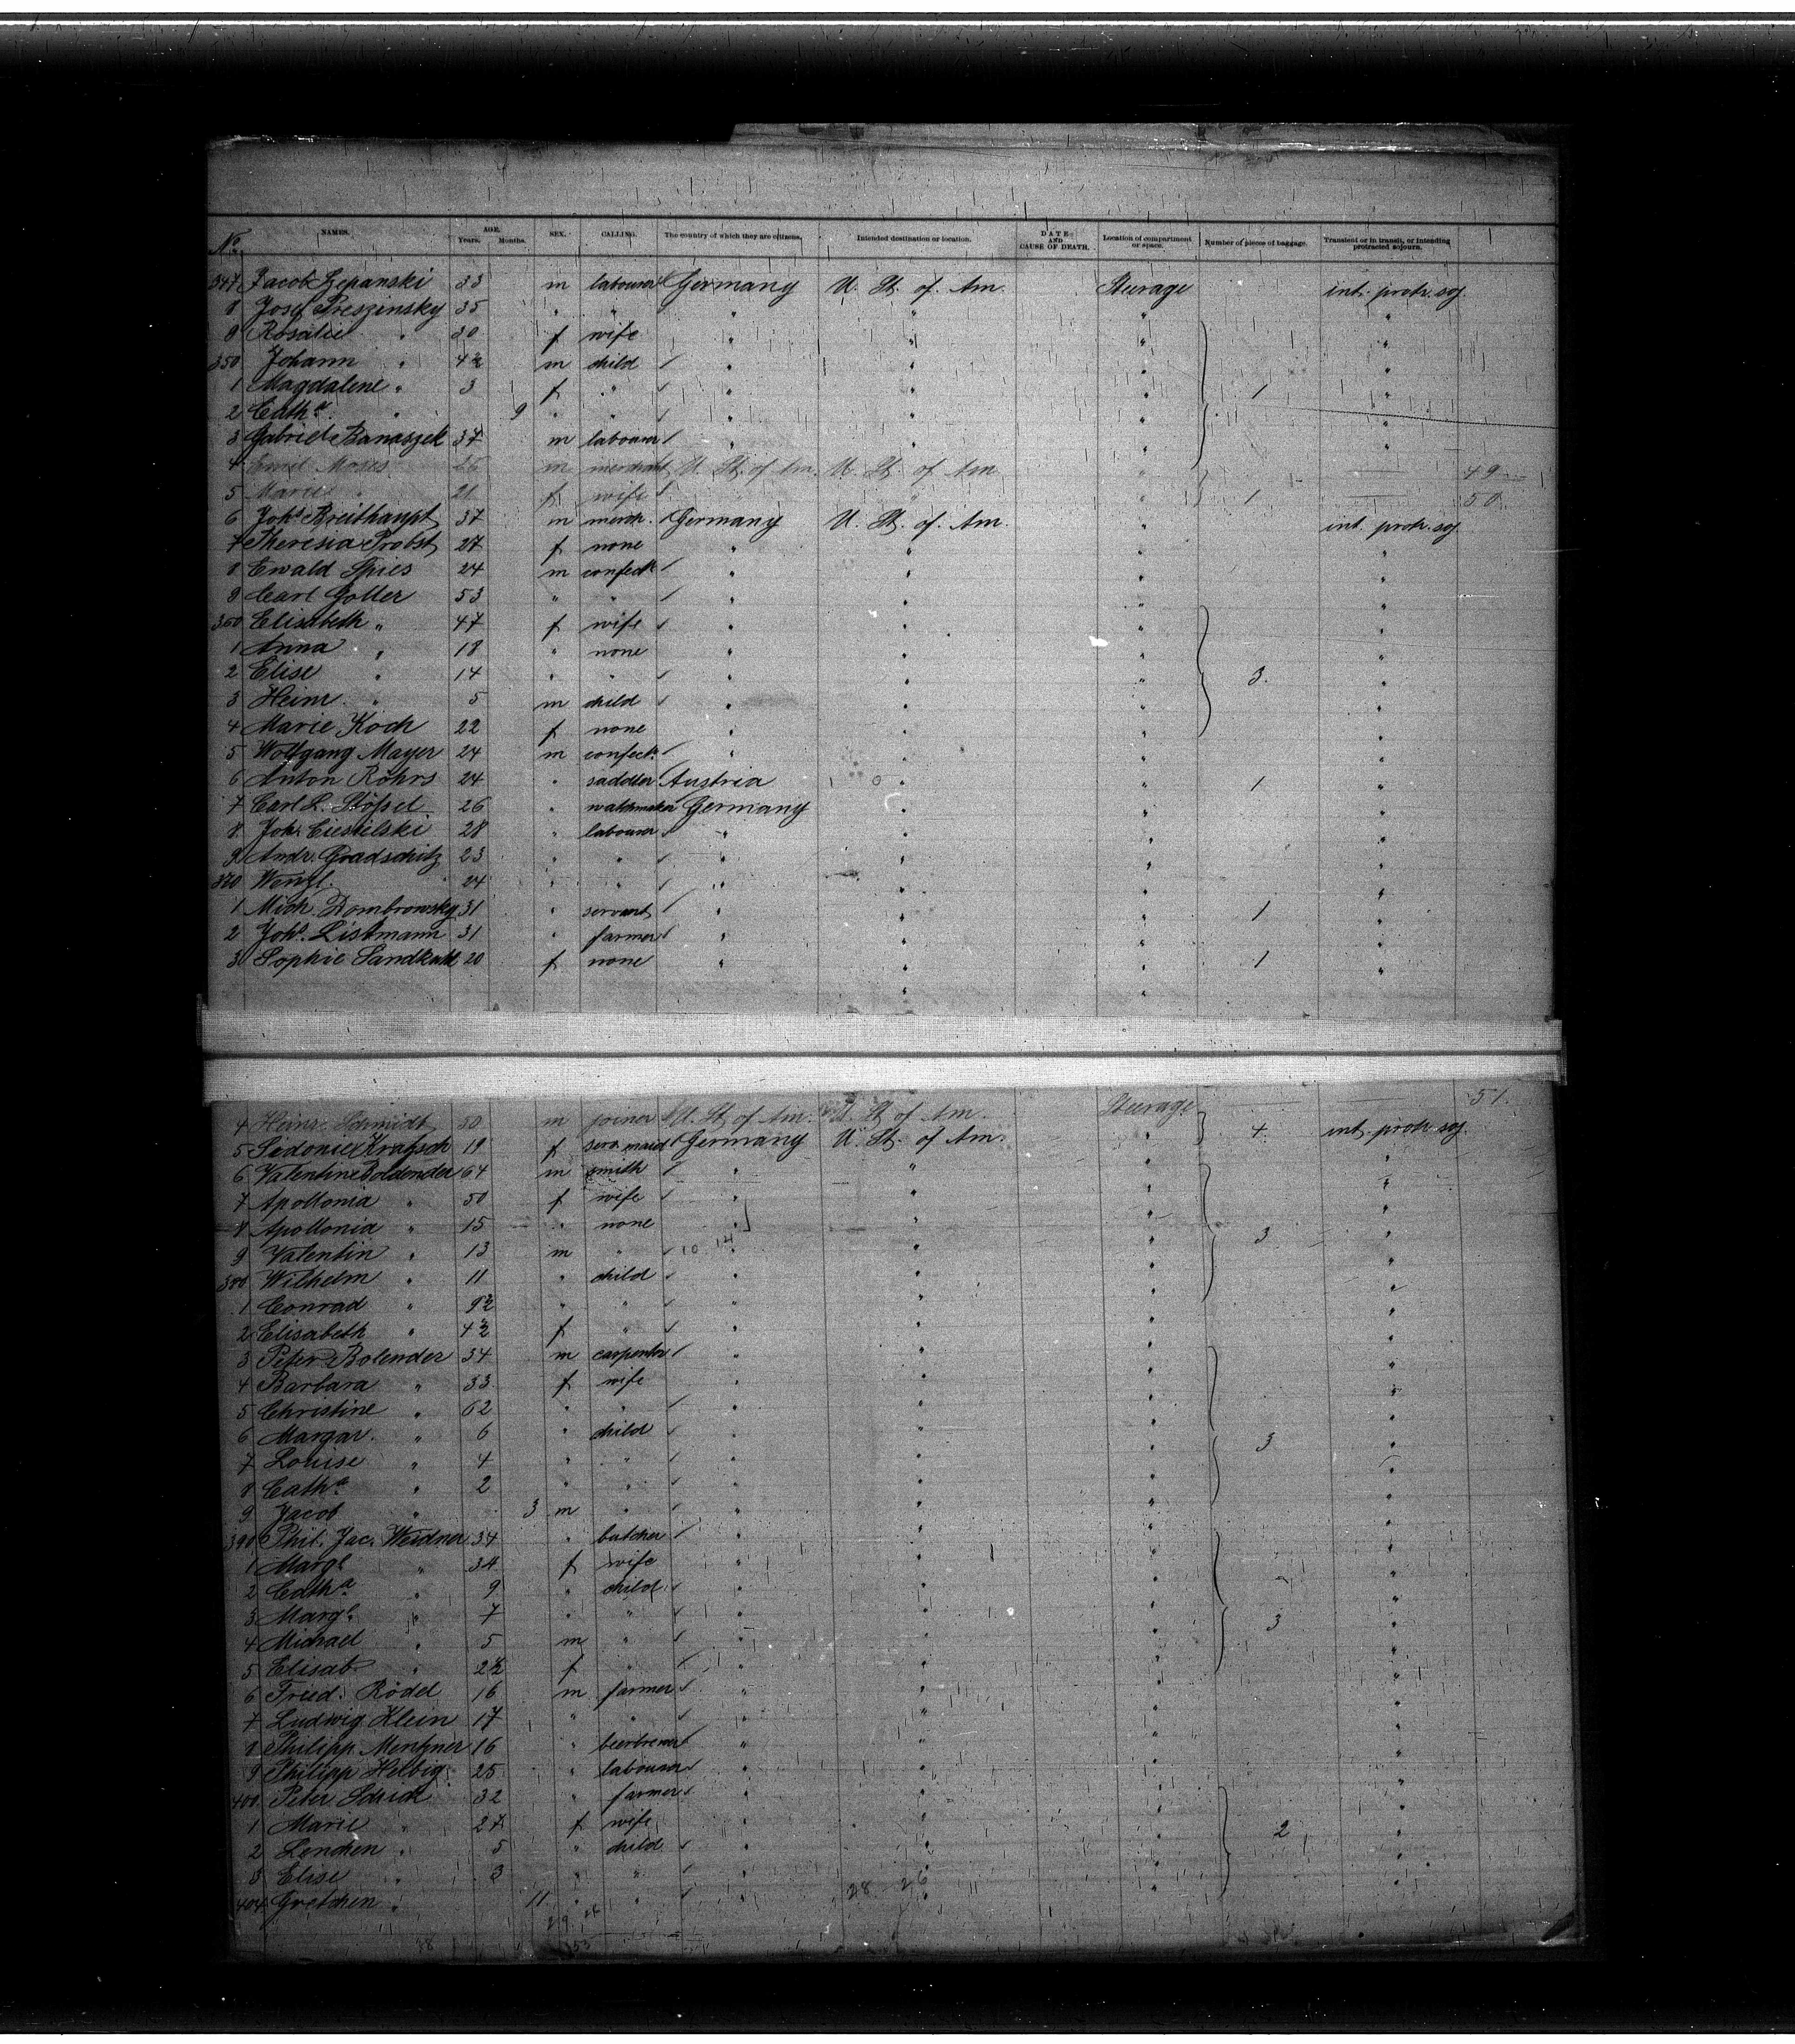 No. NAMES. AGE. Years. Months. SEX. CALLING. The country of which they are citizens. Intended destination or location. DATE AND CAUSE OF DEATH. Location of compartment or space. Number of pieces of baggage. Transient or in transit, or intending protracted sojourn.
347 Jacob Szepanski 33 m labourer Germany U. St. of Am. Steerage int. protr. soj.
8 Josef Preszinsky 35 " " " " " "
9 Rosalie " 30 f wife " " " "
350 Johann " 4½ m child " " " "
1 Magdalene " 3 f " " " " 1 "
2 Catha. " 9 " " " " " "
3 Gabriel Banaszek 37 m labourer " " " "
4 Emil Moses 26 m merchant U. St. of Am. U. St. of Am " 49
5 Marie " 21 f wife " " " 1 50
6 Johs Breithaupt 37 m merch. Germany U. St. of Am. " int. protr. soj
7 Theresia Probst 27 f none " " " "
8 Ewald Spies 24 m confectr " " " "
9 Carl Goller 53 " " " " " "
360 Elisabeth " 47 f wife " " " "
1 Anna " 18 " none " " " "
2 Elise " 14 " " " " " 3. "
3 Heinr. " 5 m child " " " "
4 Marie Koch 22 f none " " " "
5 Wolfgang Mayer 24 m confectr " " " "
6 Anton Röhrs 24 " saddler Austria " " 1 "
7 Carl L. Stössel 26 " watchmaker Germany " " "
8 Joh. Ciesielski 28 " labourer " " " "
9 Andr. Gradschitz 23 " " " " " "
370 Wenzl. " 24 " " " " " "
1 Mich. Dombrowsky 31 " servant " " " 1 "
2 Johs. Listmann 31 " farmer " " " "
3 Sophie Sandkuhl 20 f none " " " 1 "
4 Heinr. Schmidt 50 m joiner U. St. of Am. U. St of Am. Steerage 51
5 Sidonie Kratzsch 19 f serv. maid Germany U. St. of Am. " 4 int. protr. soj.
6 Valentin Boldender 64 m smith " " " "
7 Apollonia " 50 f wife " " " "
8 Apollonia " 15 " none " " " 3 "
9 Valentin " 13 m " 10 14 " " " "
380 Wilhelm " 11 " child " " " "
1 Conrad " 9½ " " " " " "
2 Elisabeth " 4½ f " " " " "
3 Peter Bolender 34 m carpenter " " " "
4 Barbara " 33 f wife " " " "
5 Christine " 62 " " " " " "
6 Margar. " 6 " child " " " 3 "
7 Louise " 4 " " " " " "
8 Catha. " 2 " " " " " "
9 Jacob " 3 m " " " " "
390 Phil. Jac. Weidner 34 " butcher " " " "
1 Marge " 34 f wife " " " "
2 Catha " 9 " child " " " "
3 Marge. " 7 " " " " " 3 "
4 Michael " 5 m " " " " "
5 Elisab " 2½ f " " " " "
6 Fried. Rödel 16 m farmer " " " "
7 Ludwig Klein 17 " " " " " "
8 Philipp Mentzner 16 " beerbrewer " " " "
9 Philipp Helbig 25 " labourer " " " "
400 Peter Schick 32 " farmer " " " "
1 Marie " 27 f wife " " " 2 "
2 Lenchen " 5 " child " " " "
3 Elise " 3 " " " " " "
404 Gretchen " 11 " " " 28 26 " "